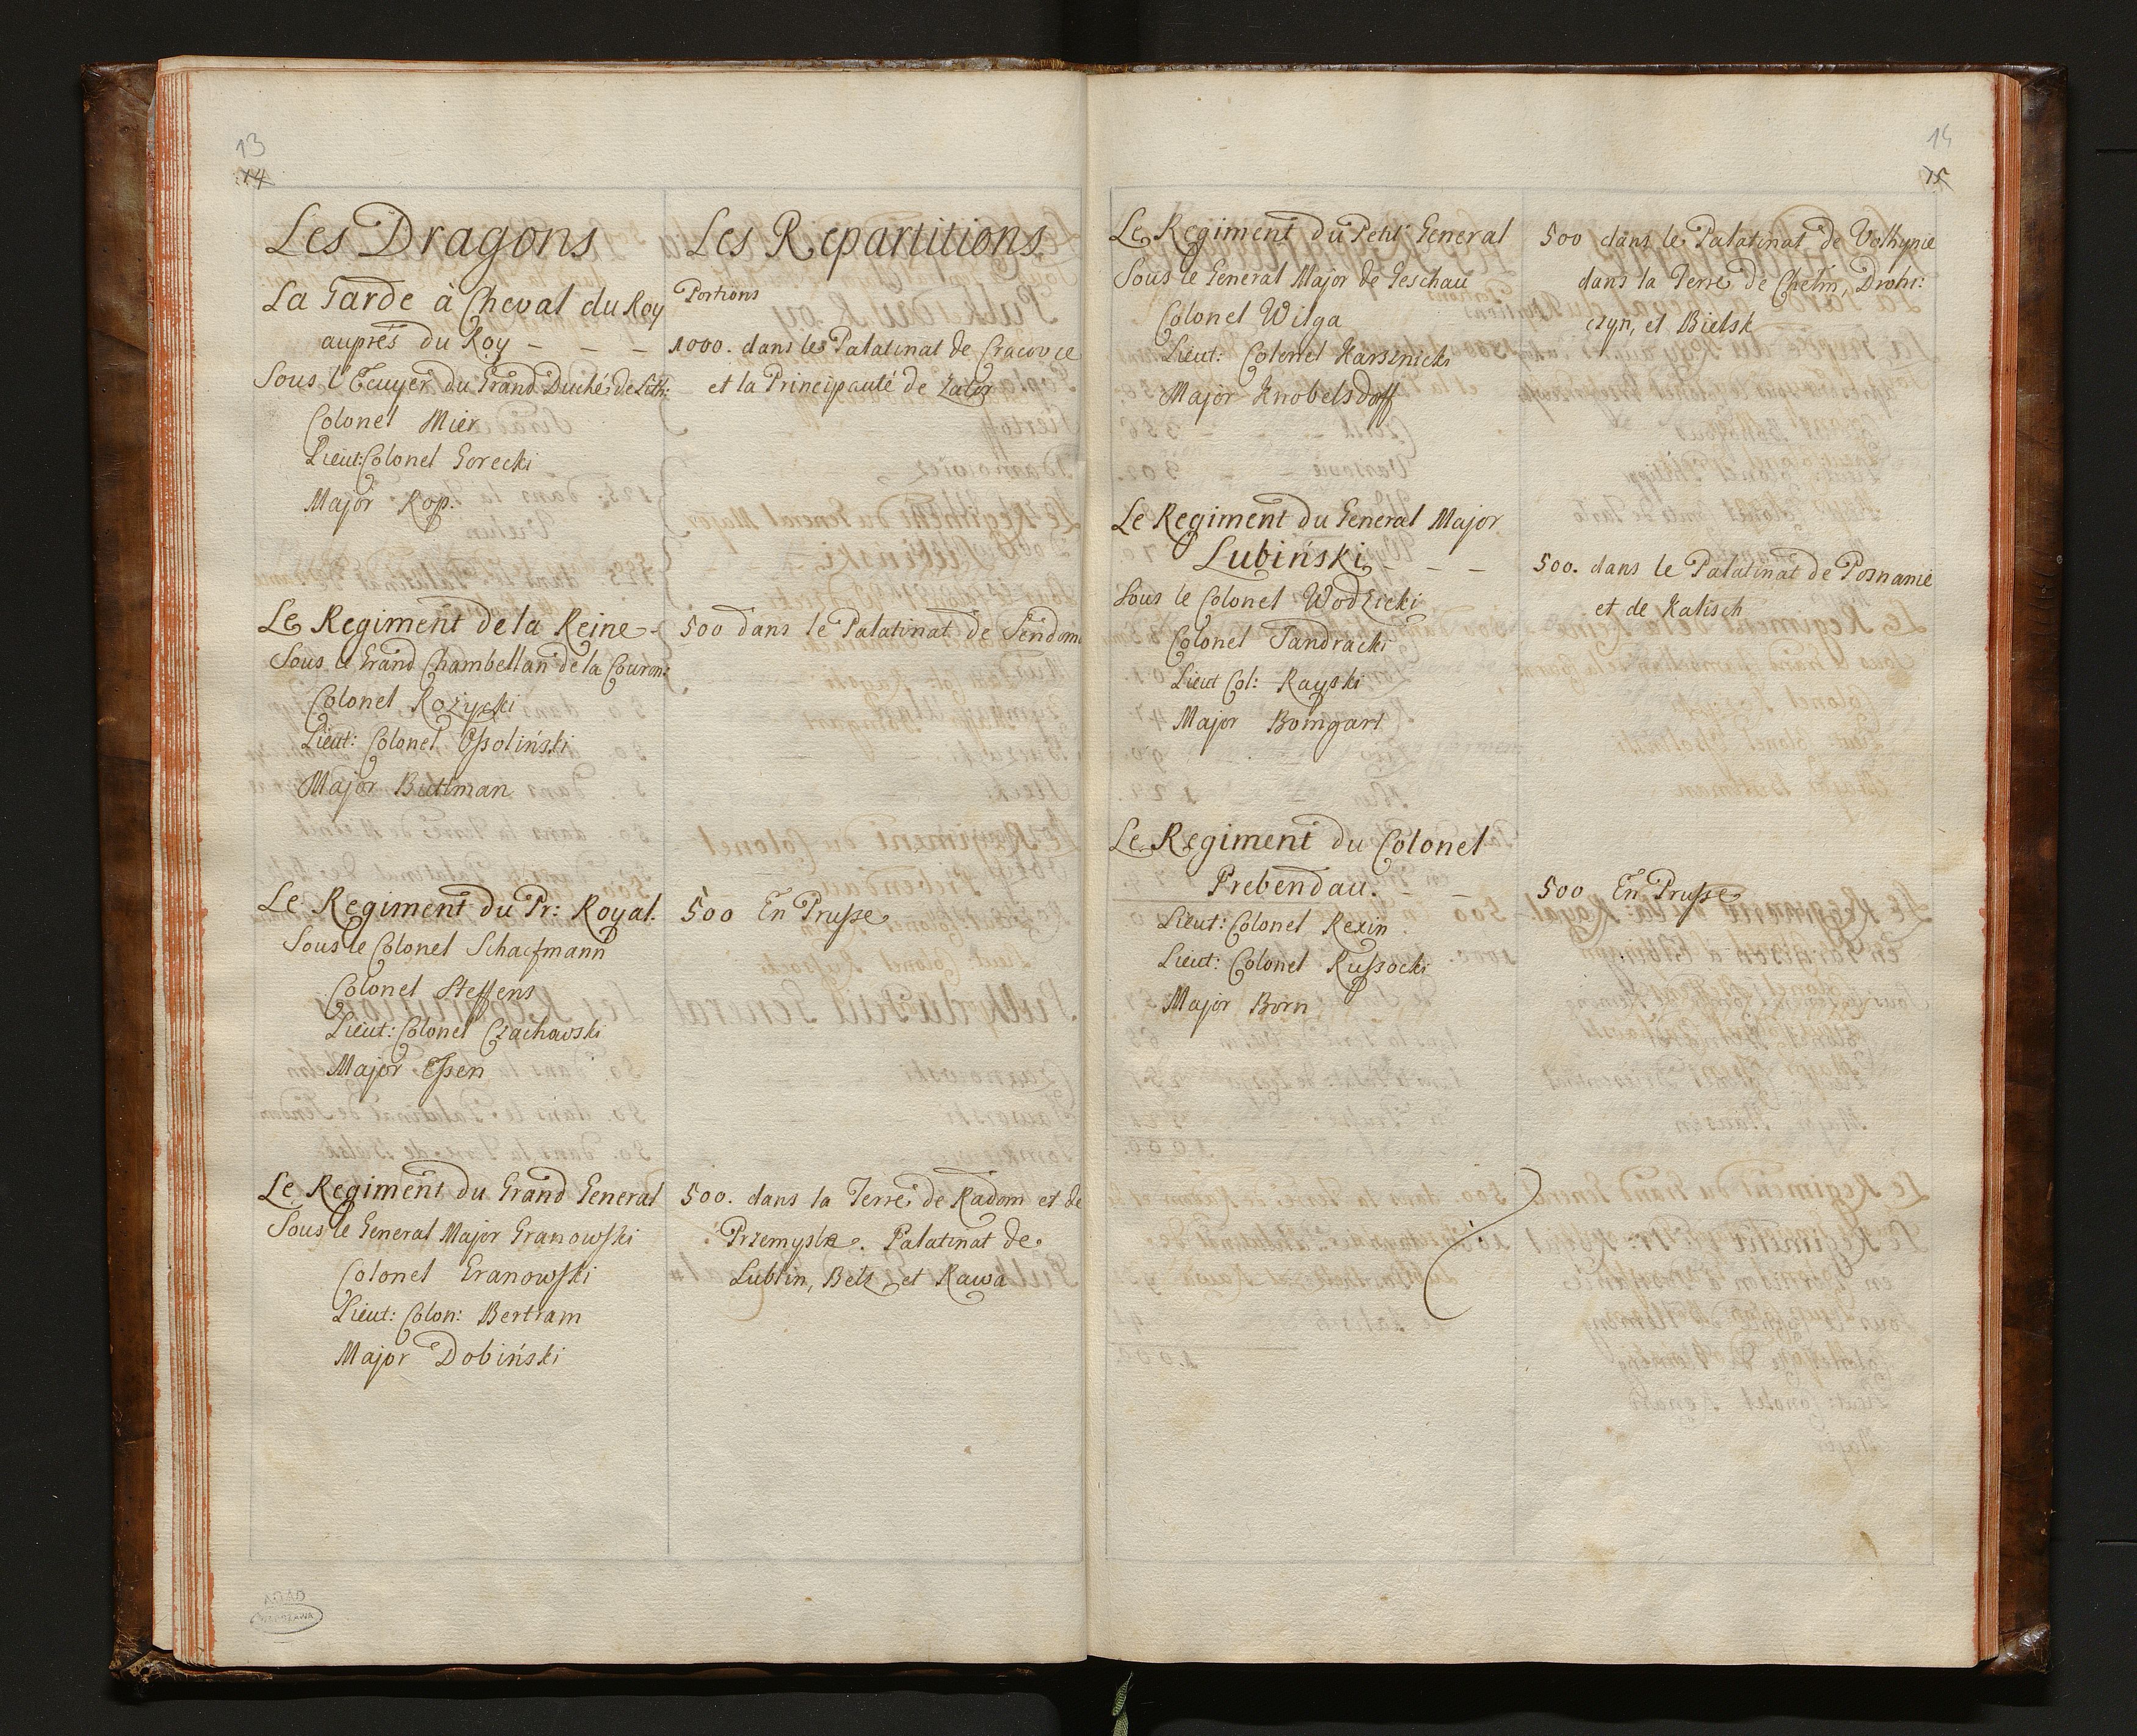 13
14
Les Dragons
La Garde à Cheval du Roy
auprés du Roy - - -
Sous l'Ecuyer du Grand Duché de Lith:
Colonel Mier
Lieut: Colonel Gorecki
Major Rop.
Le Regiment de la Reine -
Sous le Grand Chambellan de la Couron:
Colonel Rożycki
Lieut: Colonel Ossoliński
Major Buttman
Le Regiment du Pr: Royal.
Sous le Colonel Schacfmann
Colonel Steffens
Lieut: Colonel Czachowski
Major Essen
Le Regiment du Grand General
Sous le General Major Granowski
Colonel Granowski
Lieut: Colon: Bertram
Major Dobiński
Les Repartitions.
Portions
1000. dans le Palatinat de Cracovie
et la Principauté de Zator
500 dans le Palatinat de Sendom
500 En Prusse
500. dans la Terre de Radom et de
Przemysle. Palatinat de
Lublin, Belz et Rawa
ADAD
WARSZAWA
15
Le Regiment du Petit General
Sous le General Major de Jeschau
Colonel Wilga
Lieut: Colonel Karsznicki
Major Knobelsdoff
Le Regiment du General Major
Lubiński - - -
Sous le Colonel Wodzicki
Colonel Jandracki
Lieut Col: Rayski
Major Bomgart
Le Regiment du Colonel
Prebendau. - -
Lieut: Colonel Rexin
Lieut: Colonel Russocki
Major Born
500 dans le Palatinat de Volhynie
dans la Terre de Chelm, Drohi:
czyn, et Bielsk
500. dans le Palatinat de Posnanie
et de Kalisch
500 En Prusse